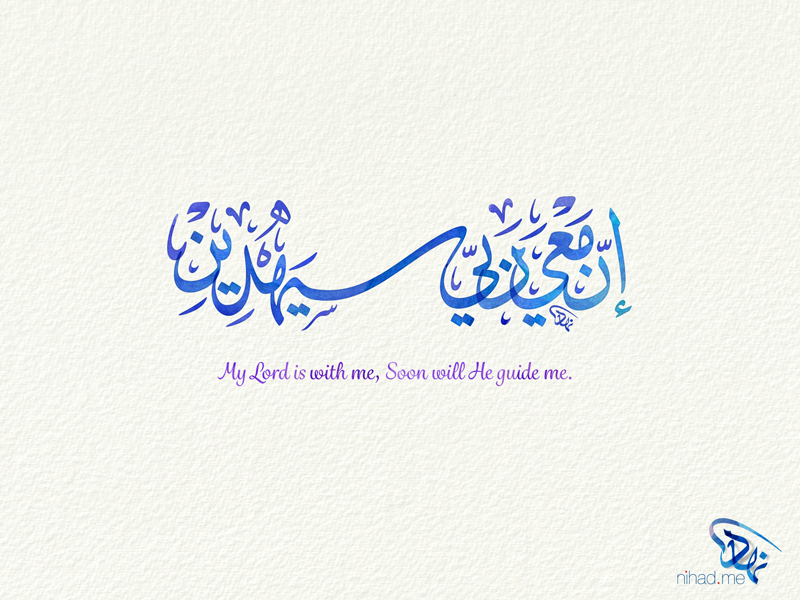 إنّ معي ربّي سيهدين
My Lord is with me, Soon will He guide me.
نهاد
nihad.me